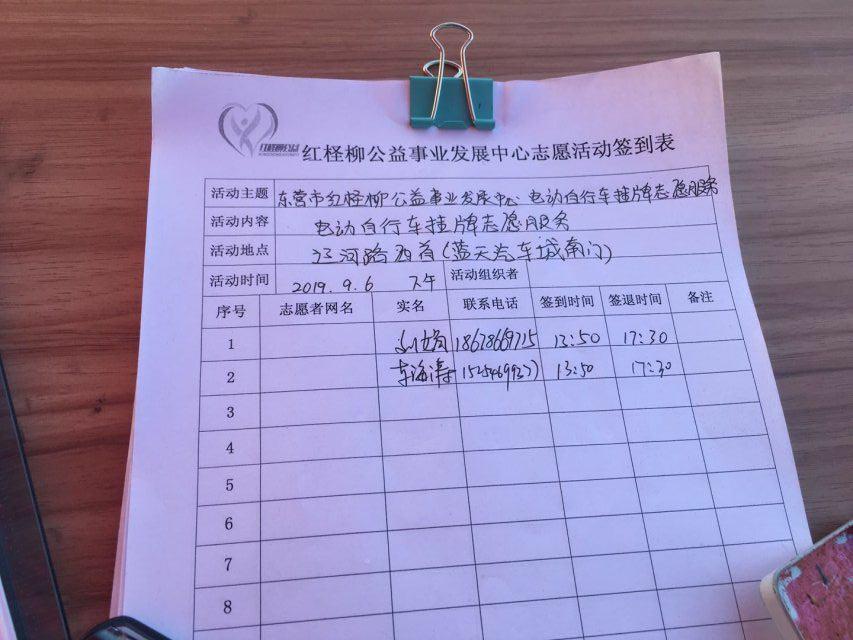 红柽柳公益事业发展中心志愿活动签到表
活动主题 东营市红柽柳公益事业发展中心 电动自行车挂牌志愿服务
活动内容 电动自行车挂牌志愿服务
活动地点 江河路西首(蓝天汽车城南门)
活动时间 2019.9.6 下午 活动组织者
序号 志愿者网名 实名 联系电话 签到时间 签退时间 备注
1 18678669715 13:50 17:30
2 海涛 13:50 17:30
3
4
5
6
7
8